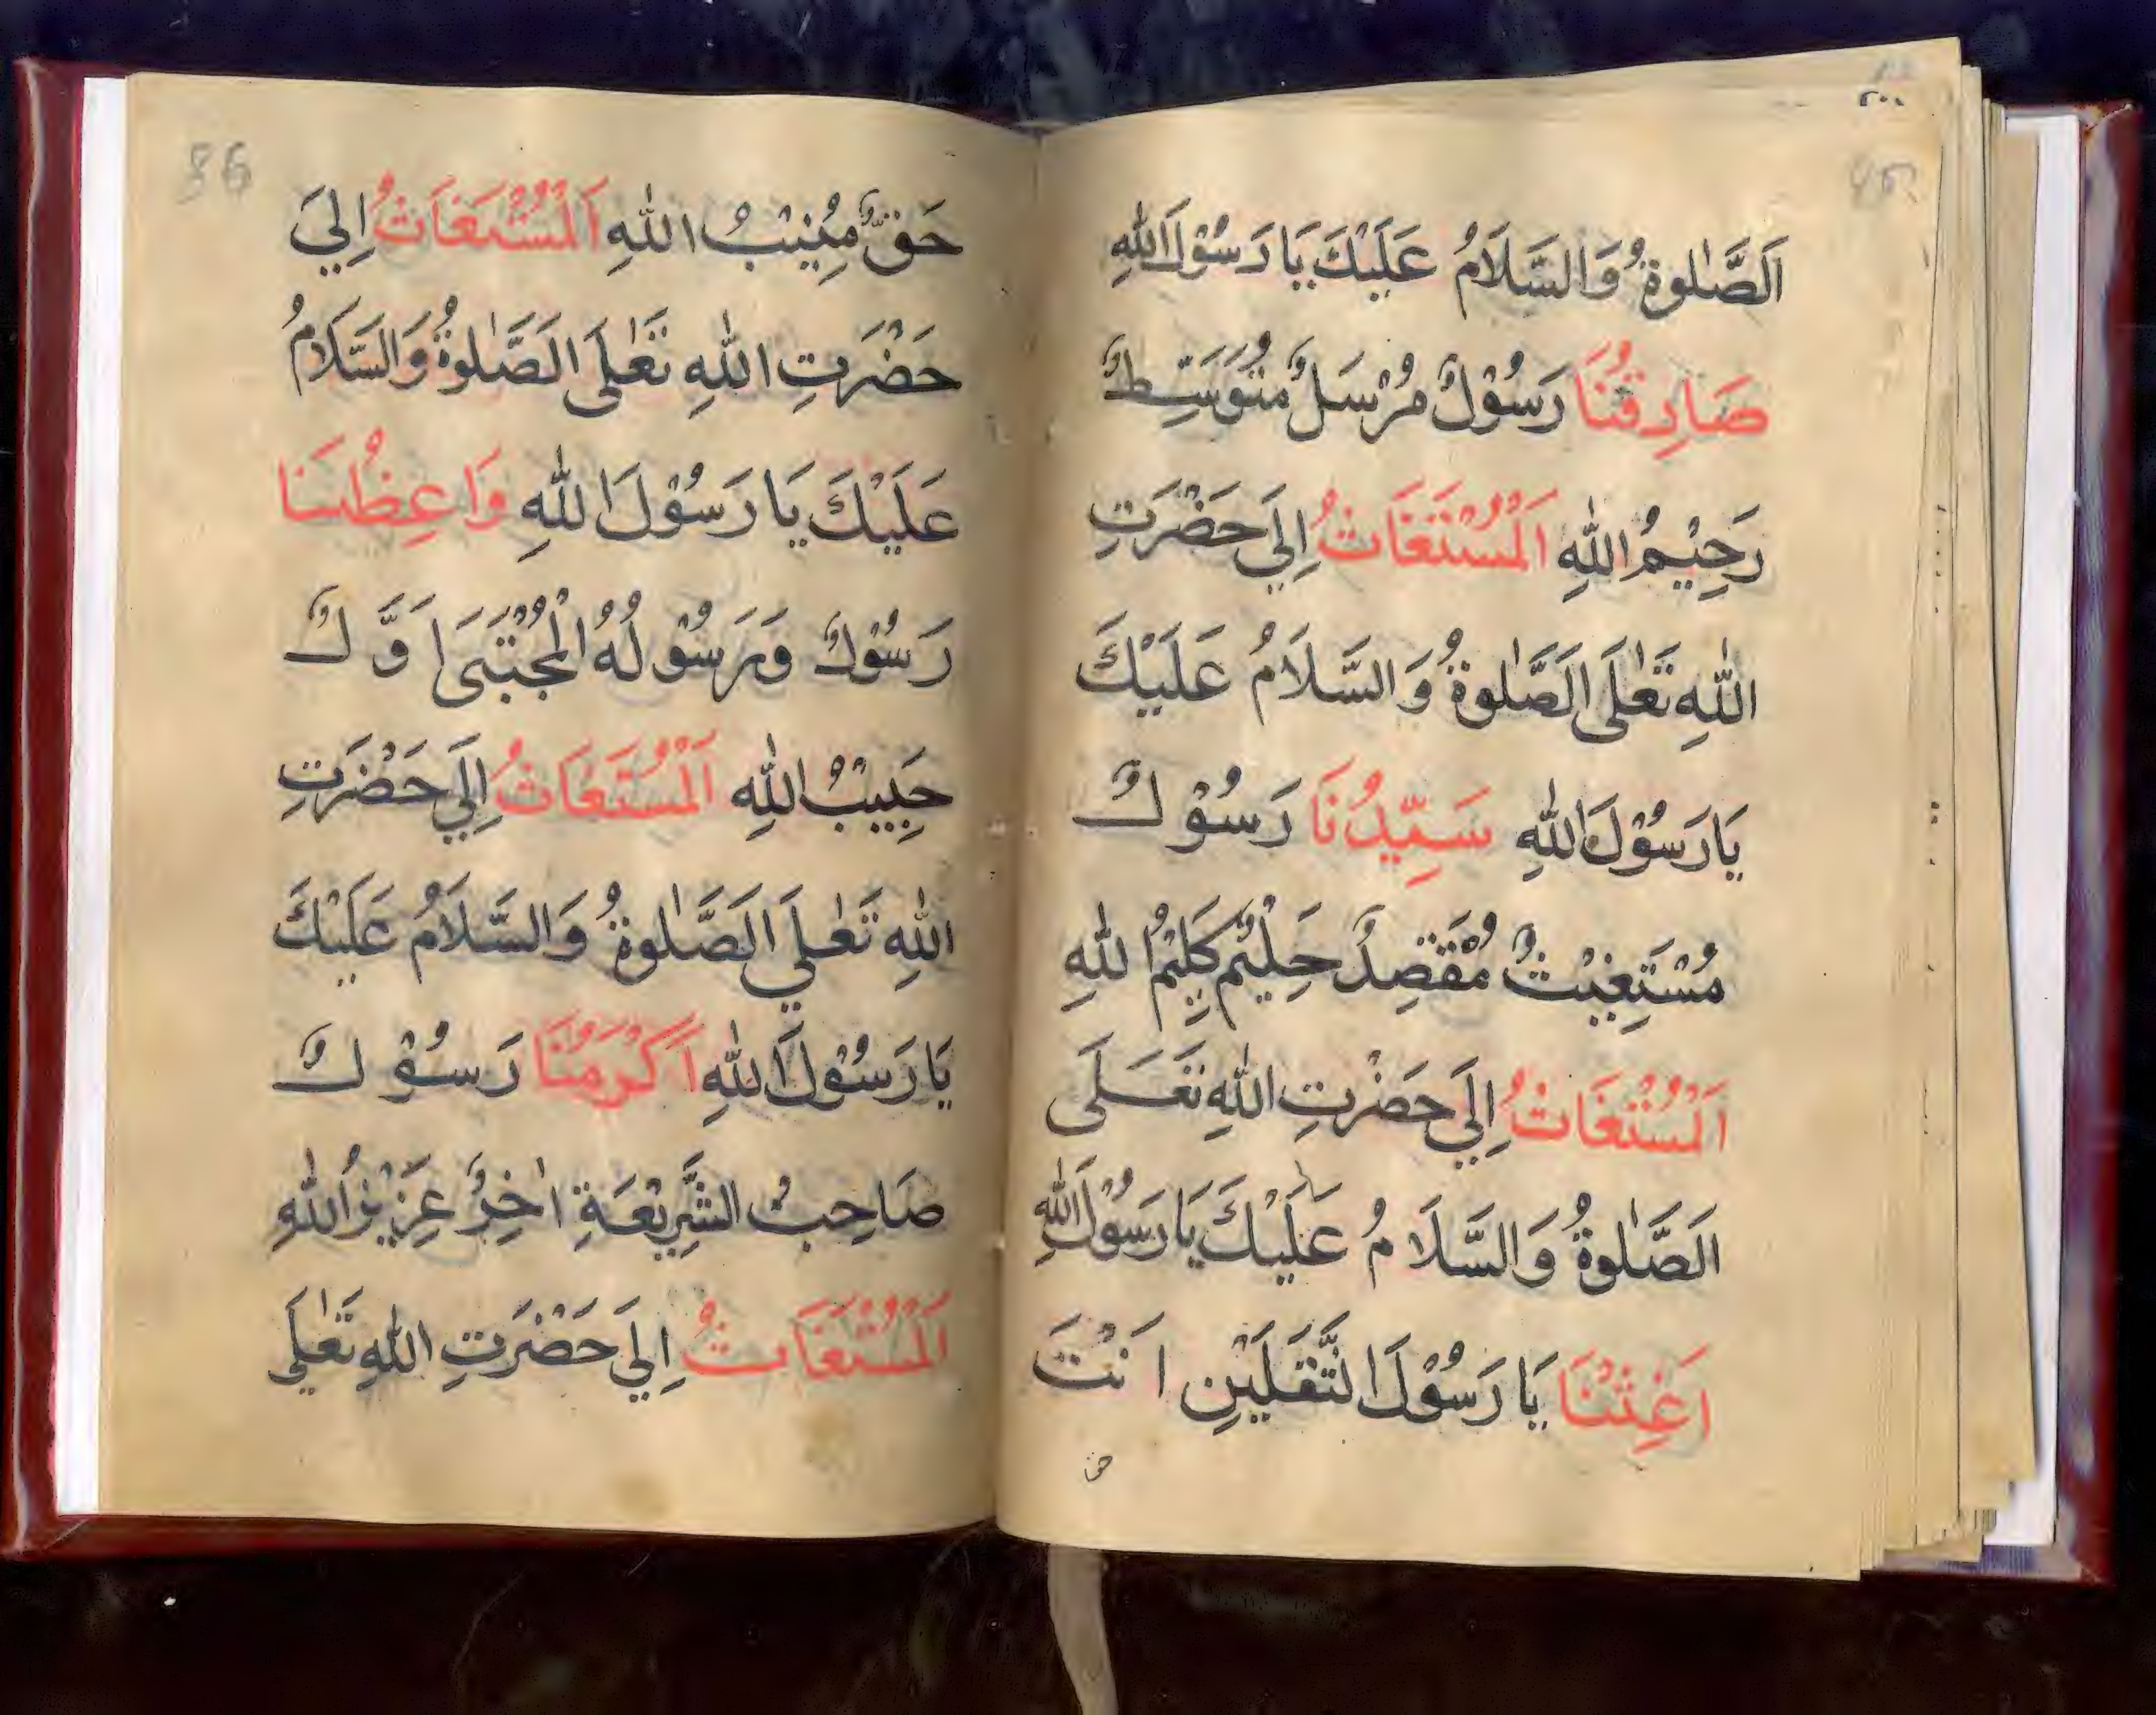 اَلصَّلٰوةُ وَالسَّلَامُ عَلَيْكَ يَا رَسُوْلَ اللّٰهِ
صَادِقُنَا رَسُوْلٌ مُرْسَلٌ مُتَوَسِّطٌ
رَحِيْمُ اللّٰهِ اَلْمُسْتَغَاثُ اِلَي حَضْرَتِ
اللّٰهِ تَعٰلَى اَلصَّلٰوةُ وَالسَّلَامُ عَلَيْكَ
يَا رَسُوْلَ اللّٰهِ سَيِّدُنَا رَسُوْلٌ
مُسْتَغِيْثٌ مُقْتَصِدٌ حَلِيْمٌ كَلِيْمُ اللّٰهِ
اَلْمُسْتَغَاثُ اِلَي حَضْرَتِ اللّٰهِ تَعَلَى
اَلصَّلٰوةُ وَالسَّلَامُ عَلَيْكَ يَا رَسُوْلَ اللّٰهِ
اَغِثْنَا يَا رَسُوْلَ الثَّقَلَيْنِ اَنْتَ
حق
86
حَقٌّ مُنِيْبُ اللّٰهِ اَلْمُسْتَغَاثُ اِلَي
حَضْرَتِ اللّٰهِ تَعٰلَى اَلصَّلٰوةُ وَالسَّلَامُ
عَلَيْكَ يَا رَسُوْلَ اللّٰهِ وَاعِظُنَا
رَسُوْلٌ وَرَسُوْلُهُ الْمُجْتَبَى اَوَّلٌ
حَبِيْبُ اللّٰهِ اَلْمُسْتَغَاثُ اِلَي حَضْرَتِ
اللّٰهِ تَعٰلَي اَلصَّلٰوةُ وَالسَّلَامُ عَلَيْكَ
يَا رَسُوْلَ اللّٰهِ اَكْرَمُنَا رَسُوْلٌ
صَاحِبُ الشَّرِيْعَةِ اٰخِرٌ عَزِيْزُ اللّٰهِ
اَلْمُسْتَغَاثُ اِلَي حَضْرَتِ اللّٰهِ تَعٰلَي